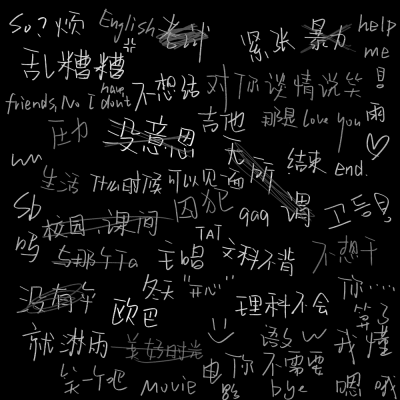 So? 烦 English 考试 紧张 暴力 help me
乱糟糟 不想结 对你谈情说笑
friends, No I don't have
压力 没意思 吉他 那是 love you 雨
无所谓 结束 end.
生活 什么时候可以见面
Sb 校园 课间 囚犯 qaq
吗 与那个Ta 主唱 TAT 文科不背 不想干
没有伞 欧巴 冬天 "开心" 理科不会 你....
就淋雨 美好时光 语文 我懂 算了
笑一个吧 movie 电影 你不需要 bye 嗯 哦